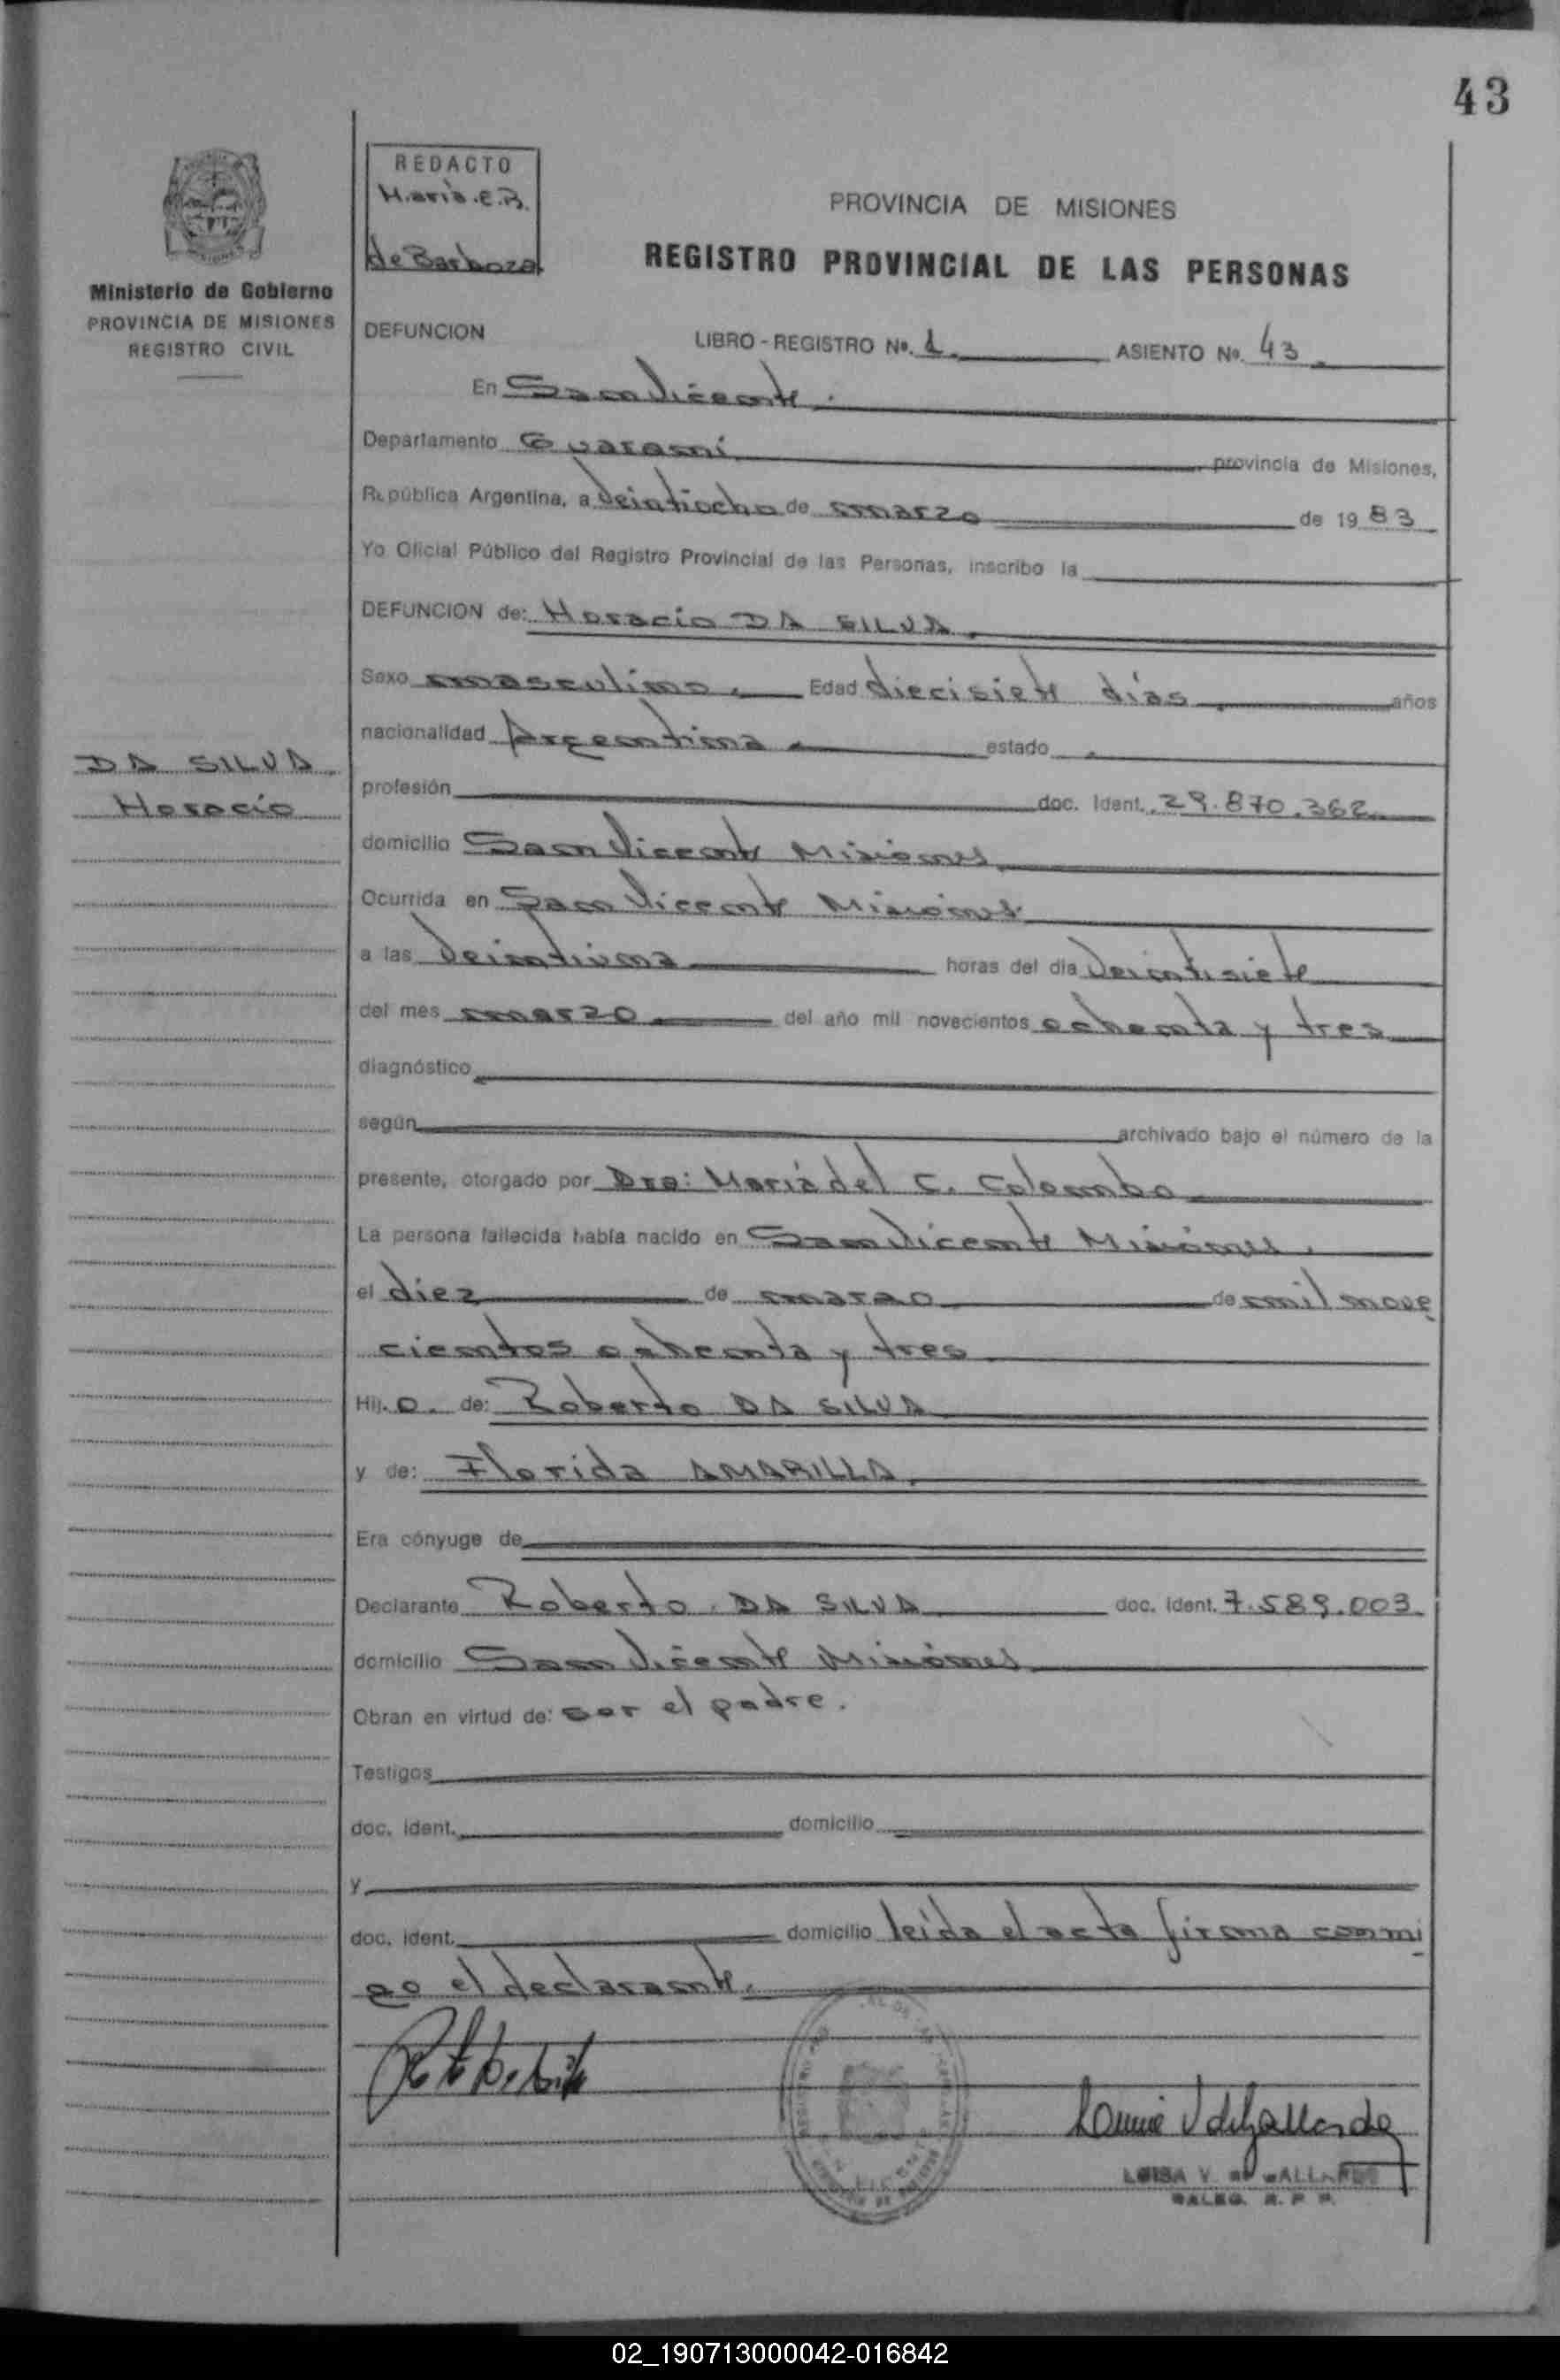 43
REDACTO
María.E.B.
de Barboza
Ministerio de Gobierno
PROVINCIA DE MISIONES
REGISTRO CIVIL
PROVINCIA DE MISIONES
REGISTRO PROVINCIAL DE LAS PERSONAS
DEFUNCION LIBRO - REGISTRO Nº. 1. ASIENTO Nº. 43.
En San Vicente.
Departamento Guaraní provincia de Misiones,
República Argentina, a Veintiocho de marzo de 1983
Yo Oficial Público del Registro Provincial de las Personas, inscribo la
DEFUNCION de: Horacio DA SILVA.
Sexo masculino. Edad diecisiete días. años
nacionalidad Argentina. estado .
DA SILVA.
Horacio
profesión doc. Ident. 29.870.362
domicilio San Vicente Misiones
Ocurrida en San Vicente Misiones
a las Veintiuna horas del día Veintisiete
del mes marzo. del año mil novecientos ochenta y tres
diagnóstico
según archivado bajo el número de la
presente, otorgado por Dra: María del C. Colombo
La persona fallecida había nacido en San Vicente Misiones.
el diez de marzo de mil nove
cientos ochenta y tres
Hij.o. de: Roberto DA SILVA
y de: Florida AMARILLA.
Era cónyuge de
Declarante Roberto DA SILVA doc. ident. 7.589.003
domicilio San Vicente Misiones
Obran en virtud de: ser el padre.
Testigos
doc. ident. domicilio
y
doc. ident. domicilio leída el acta firma conmi
go el declarante.
LUISA V. DE GALLARDO
R. P. P.
02_190713000042-016842